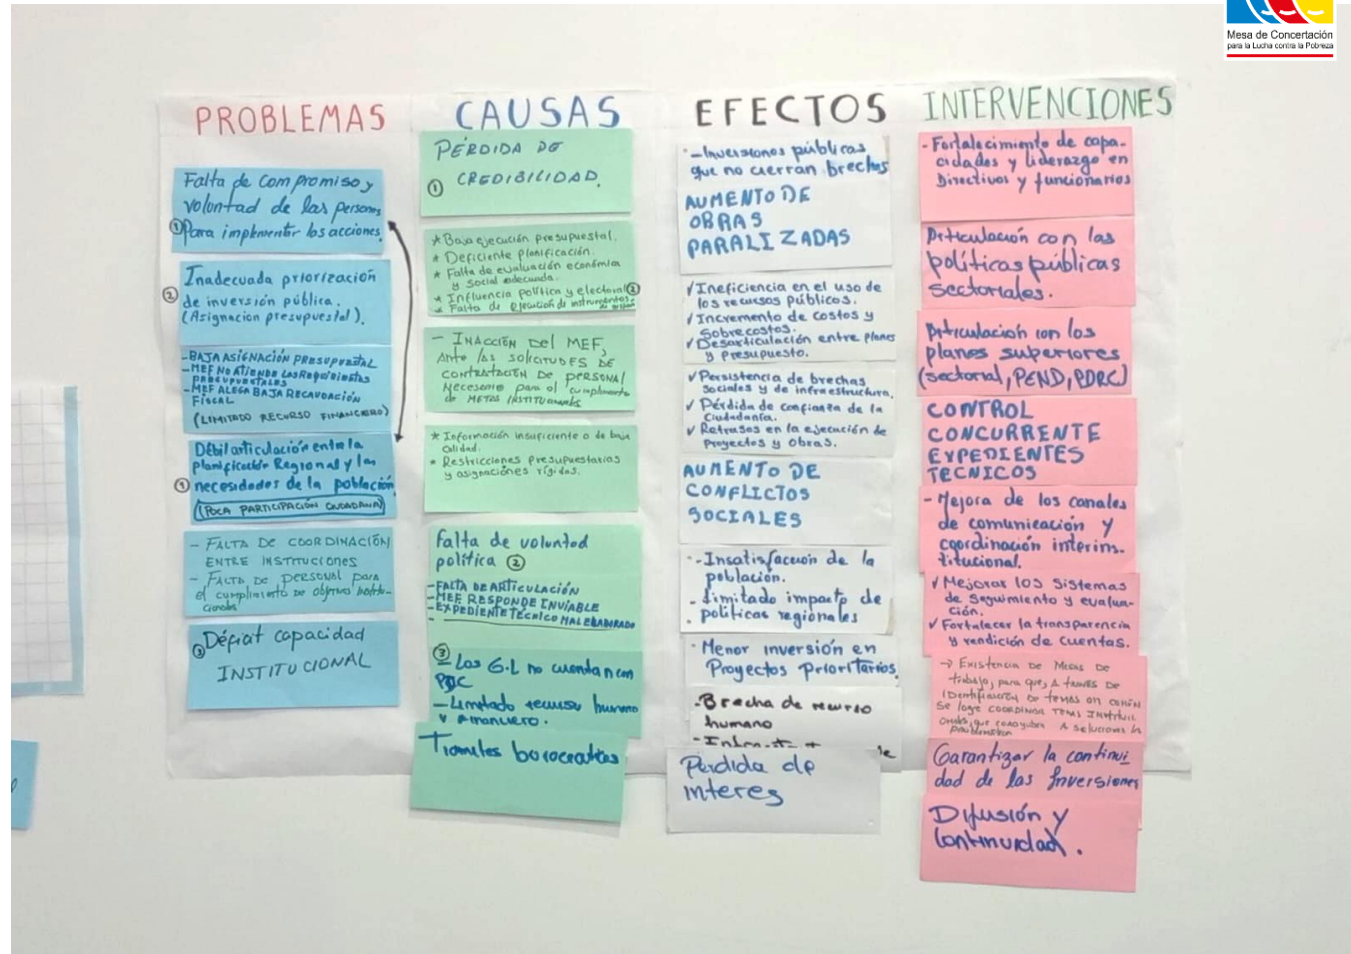 Mesa de Concertación
para la Lucha contra la Pobreza
PROBLEMAS
Falta de compromiso y
voluntad de las personas
① Para implementar las acciones.
Inadecuada priorización
② de inversión pública.
(Asignación presupuestal).
- BAJA ASIGNACIÓN PRESUPUESTAL
- MEF NO ATIENDE LOS REQUERIMIENTOS
PRESUPUESTALES
- MEF ALEGA BAJA RECAUDACIÓN
FISCAL
(LIMITADO RECURSO FINANCIERO)
Débil articulación entre la
planificación Regional y las
① necesidades de la población
(POCA PARTICIPACIÓN CIUDADANA)
- FALTA DE COORDINACIÓN
ENTRE INSTITUCIONES
- FALTA DE personal para
el cumplimiento de objetivos
③ Déficit capacidad
INSTITUCIONAL
CAUSAS
PÉRDIDA DE
① CREDIBILIDAD.
* Baja ejecución presupuestal.
* Deficiente planificación.
* Falta de evaluación económica
y social adecuada.
* Influencia política y electoral ②
* Falta de ejecución de instrumentos
- INACCIÓN DEL MEF,
Ante las solicitudes DE
contratación de personal
Necesario para el cumplimiento
de METAS INSTITUCIONALES
* Información insuficiente o de baja
calidad.
* Restricciones presupuestarias
y asignaciones rígidas.
Falta de voluntad
política ②
- FALTA DE ARTICULACIÓN
- MEF RESPONDE INVIABLE
- EXPEDIENTE TÉCNICO MAL ELABORADO
③
- Los G.L no cuentan con
PDC
- Limitado recurso humano
y financiero.
Tramites burocraticos
EFECTOS
- Inversiones públicas
que no cierran brechas
AUMENTO DE
OBRAS
PARALIZADAS
✓ Ineficiencia en el uso de
los recursos públicos.
✓ Incremento de costos y
sobrecostos.
✓ Desarticulación entre planes
y presupuesto.
✓ Persistencia de brechas
sociales y de infraestructura.
✓ Pérdida de confianza de la
Ciudadanía.
✓ Retrasos en la ejecución de
Proyectos y obras.
AUMENTO DE
CONFLICTOS
SOCIALES
- Insatisfacción de la
población.
- Limitado impacto de
políticas regionales
- Menor inversión en
Proyectos Prioritarios.
- Brecha de recurso
humano
Perdida de
interes
INTERVENCIONES
- Fortalecimiento de capa-
cidades y liderazgo en
Directivos y funcionarios
Articulación con las
políticas públicas
sectoriales.
Articulación con los
planes superiores
(sectorial, PEND, PDRC)
CONTROL
CONCURRENTE
EXPEDIENTES
TECNICOS
- Mejora de los canales
de comunicación y
coordinación interins-
titucional.
✓ Mejorar los sistemas
de seguimiento y evalua-
ción.
✓ Fortalecer la transparencia
y rendición de cuentas.
→ Existencia DE MESAS DE
trabajo, para que, A TRAVÉS DE
IDENTIFICACIÓN DE temas en común
Se logre COORDINAR TEMAS
que A solucionar la
problematica
Garantizar la continui
dad de las Inversiones
Difusión y
Continuidad.